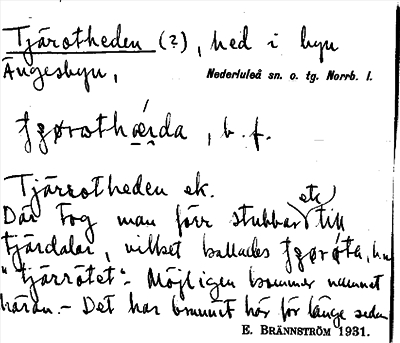 Tjärotheden (?), hed i byn
Ängesbyn,
Nederluleå sn. o. tg. Norrb. l.
b. f.
Tjärrotheden ek.
Där tog man förr stubbar etc till
tjärdalar, vilket kallades
"tjärrötet". Möjligen kommer namnet
härav. – Det har brunnit här för länge sedan
E. BRÄNNSTRÖM 1931.